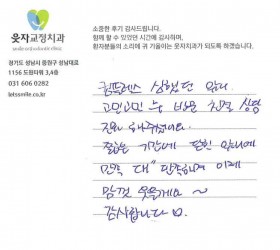 웃자교정치과
smile orthodontic clinic
경기도 성남시 중원구 성남대로
1156 도원타워 3,4층
031 606 0282
letssmile.co.kr
소중한 후기 감사드립니다.
함께 할 수 있었던 시간에 감사하며,
환자분들의 소리에 귀 기울이는 웃자치과가 되도록 하겠습니다.
컴플렉스 심했던 앞니
고민고민 중 바로 친절 상담
진료 해주셨네요.
짧은 기간에 앞니에
만족 대 만족하며 이제
맘껏 웃을게요 ~
감사합니다